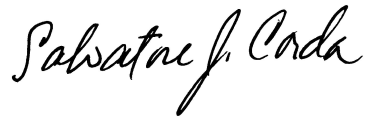 Salvatore J. Corda